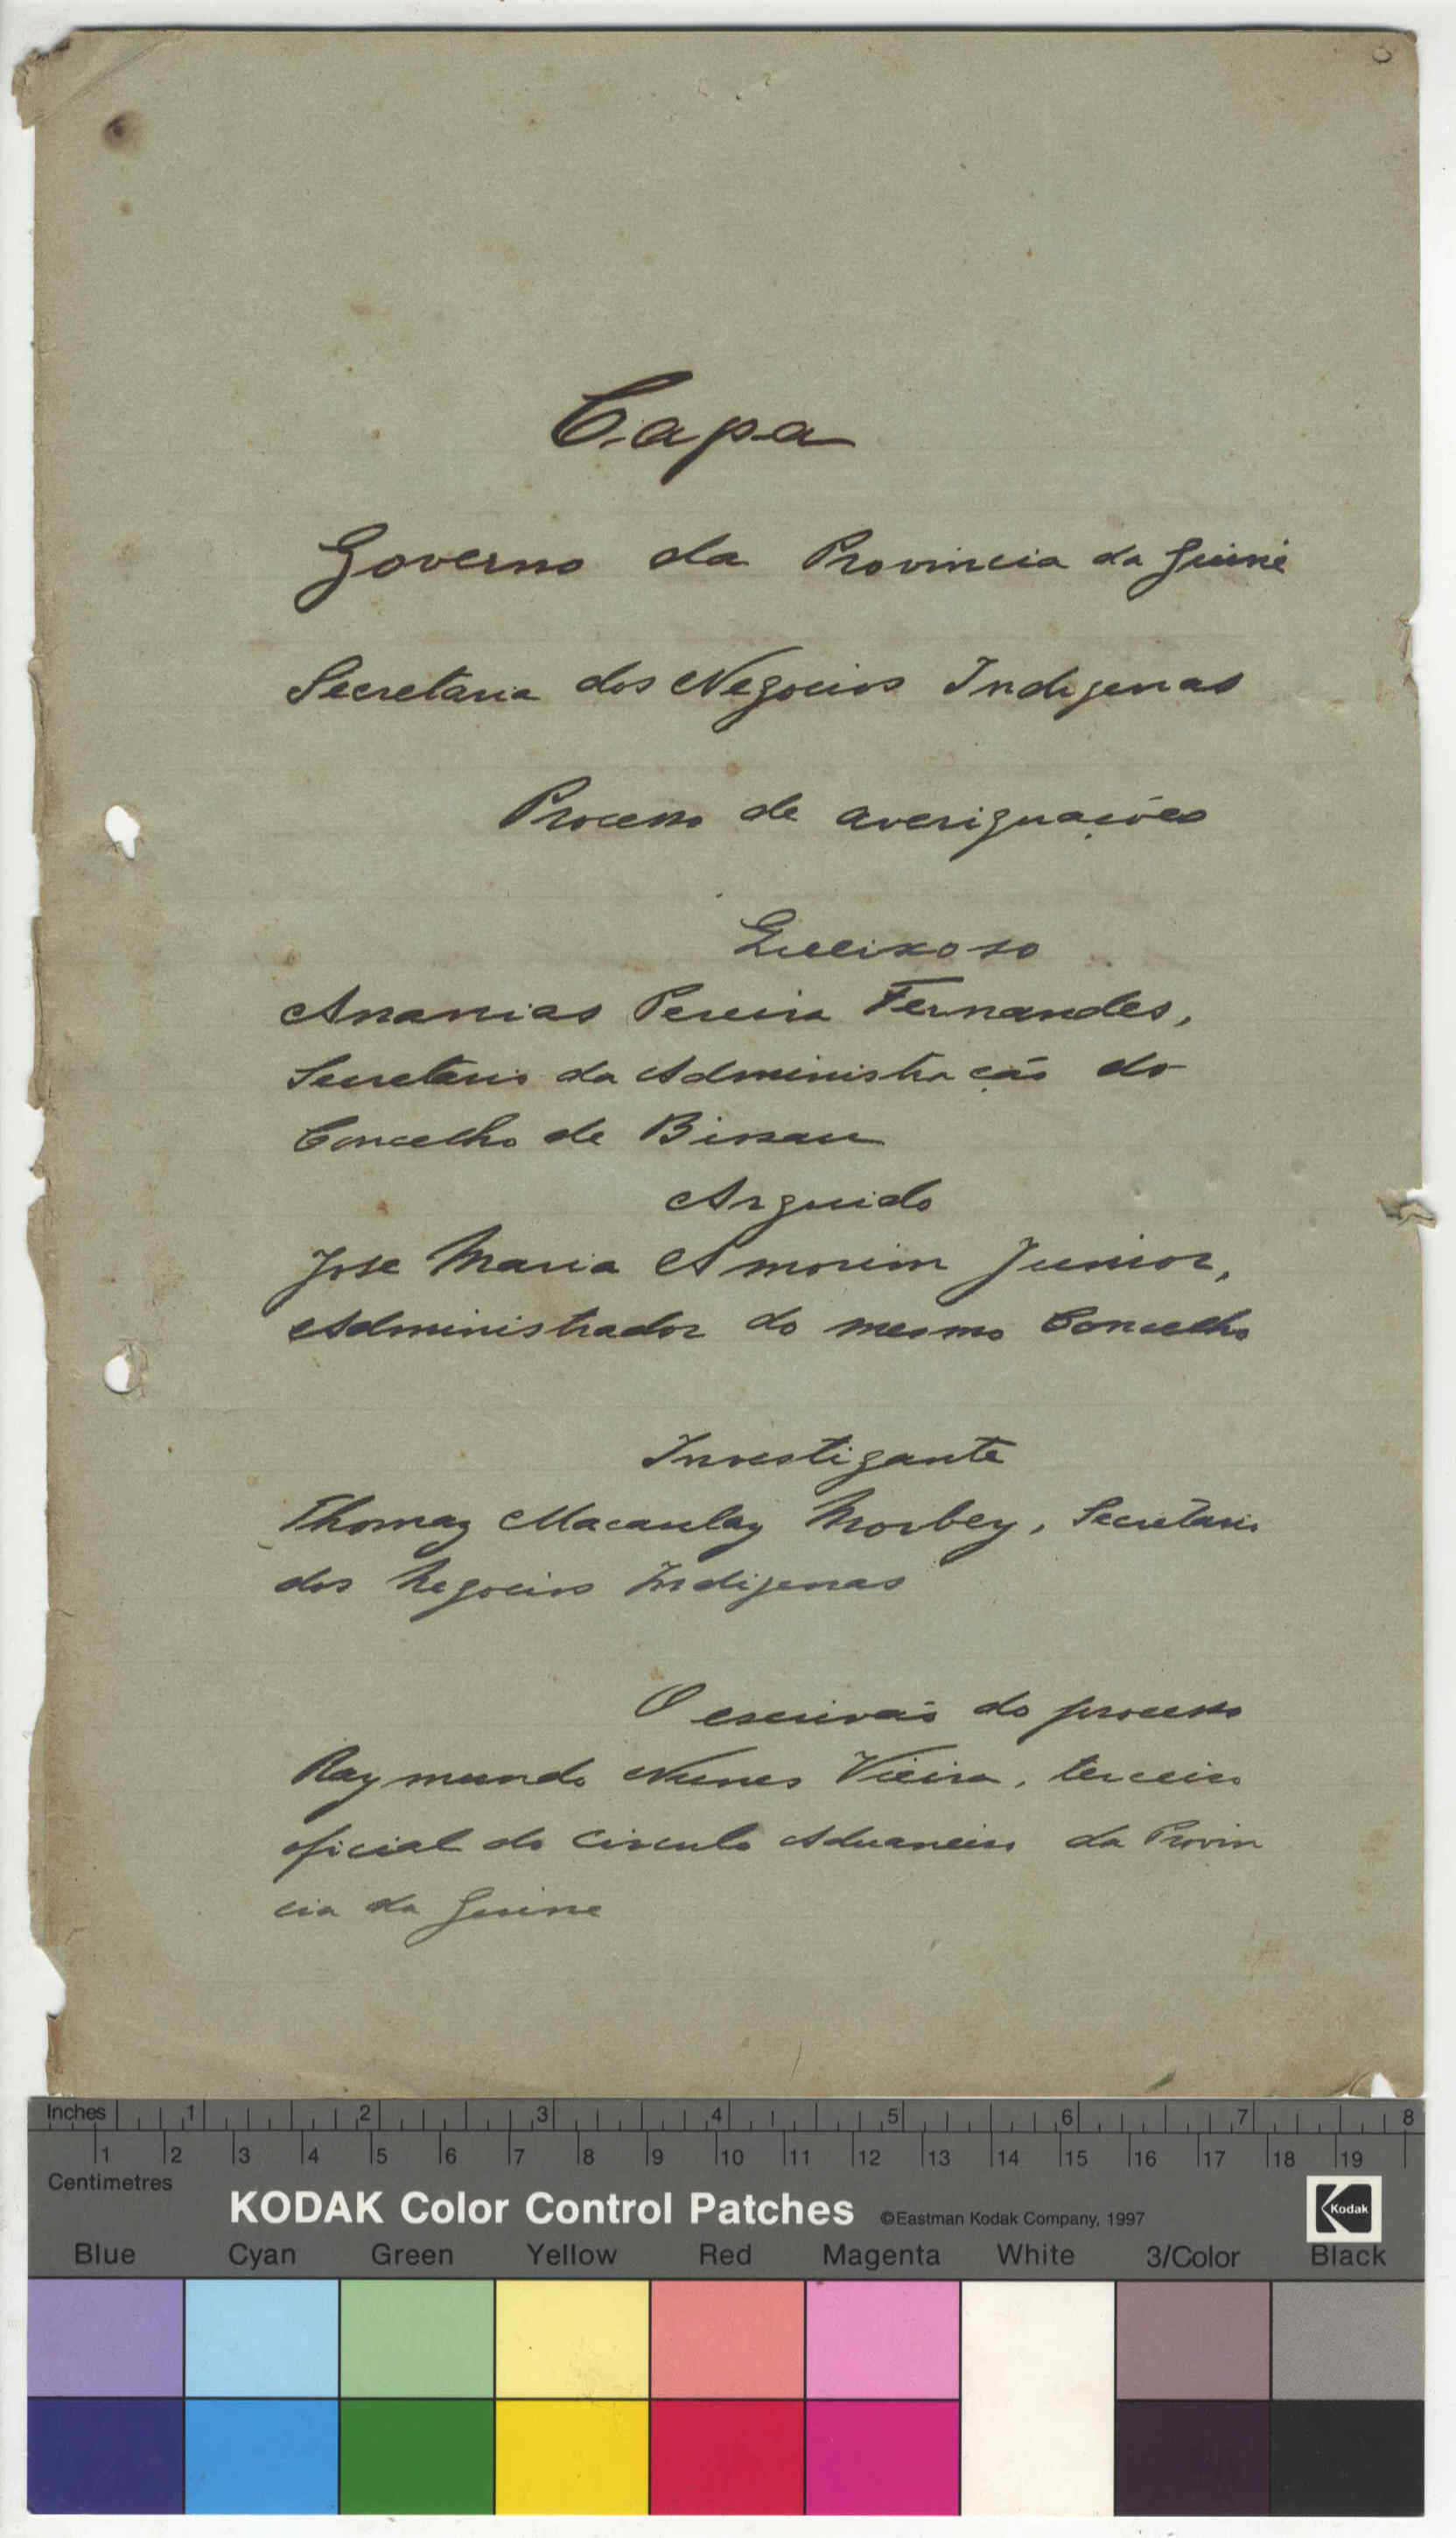 Capa
Governo da Provincia da Guiné
Secretaria dos Negocios Indigenas
Processo de averiguações
Queixoso
Ananias Pereira Fernandes,
Secretario da Administração do
Concelho de Bissau
Arguido
Jose Maria Amorim Junior,
Administrador do mesmo Concelho
Investigante
Thomaz Macaulay Morbey, Secretario
dos Negocios Indigenas
O escrivão do processo
Raymundo Nunes Vieira, terceiro
oficial do Circulo Aduaneiro da Provin
cia da Guine
Inches 1 2 3 4 5 6 7 8
1 2 3 4 5 6 7 8 9 10 11 12 13 14 15 16 17 18 19
Centimetres
KODAK Color Control Patches ©Eastman Kodak Company, 1997 Kodak
Blue Cyan Green Yellow Red Magenta White 3/Color Black